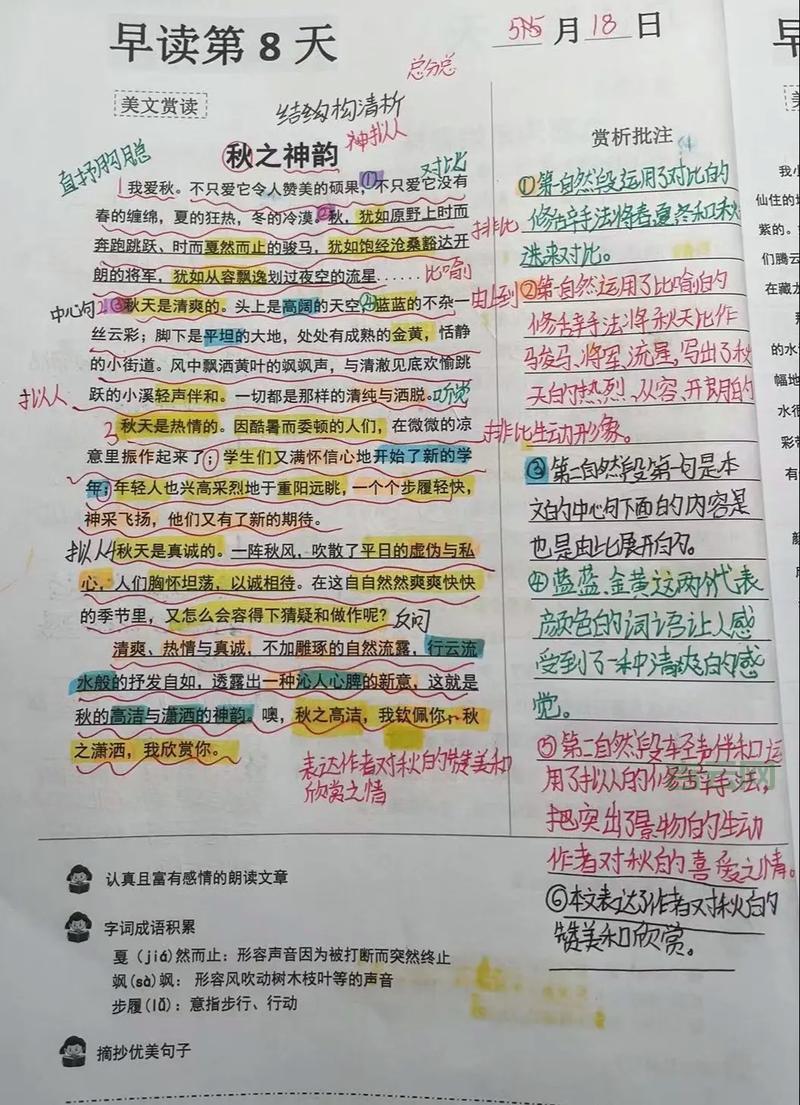 早读第 8 天
5月18日
总分总
美文赏读
结构清析
神拟人
秋之神韵
直抒胸臆
对比
1我爱秋。不只爱它令人赞美的硕果,①不只爱它没有
春的缠绵,夏的狂热,冬的冷漠。②秋,犹如原野上时而
奔跑跳跃、时而戛然而止的骏马,犹如饱经沧桑豁达开
排比
朗的将军,犹如从容飘逸划过夜空的流星……
比喻
中心句2.③秋天是清爽的。头上是高阔的天空④蓝蓝的不杂一
由上到
丝云彩;脚下是平坦的大地,处处有成熟的金黄,恬静
的小街道。风中飘洒黄叶的飒飒声,与清澈见底欢愉跳
拟人
跃的小溪轻声伴和。一切都是那样的清纯与洒脱。听觉
3秋天是热情的。因酷暑而委顿的人们,在微微的凉
排比
意里振作起来了;学生们又满怀信心地开始了新的学
年;年轻人也兴高采烈地于重阳远眺,一个个步履轻快,
神采飞扬,他们又有了新的期待。
拟人4秋天是真诚的。一阵秋风,吹散了平日的虚伪与私
心,人们胸怀坦荡,以诚相待。在这自自然然爽爽快快
的季节里,又怎么会容得下猜疑和做作呢?反问
清爽、热情与真诚,不加雕琢的自然流露,行云流
水般的抒发自如,透露出一种沁人心脾的新意,这就是
秋的高洁与潇洒的神韵。噢,秋之高洁,我钦佩你,秋
之潇洒,我欣赏你。
表达作者对秋的赞美和
欣赏之情
赏析批注
①第一自然段运用了对比的
修辞手法将春夏冬和秋
进来对比。
②第一自然运用了比喻的
修辞手法将秋天比作
骏马、将军、流星,写出了秋
天的热烈、从容、开朗的
生动形象。
③第二自然段第一句是本
文的中心句下面的内容是
也是由比展开的。
④蓝蓝、金黄这两个代表
颜色的词语让人感
受到了一种清爽的感
觉。
⑤第二自然段轻声伴和运
用了拟人的修辞手法,
把突出了景物的生动
作者对秋的喜爱之情。
⑥本文表达了作者对秋的
赞美和欣赏。
认真且富有感情的朗读文章
字词成语积累
戛(jiá)然而止:形容声音因为被打断而突然终止
飒(sà)飒:形容风吹动树木枝叶等的声音
步履(lǚ):意指步行、行动
摘抄优美句子
早
美
我小
仙住的
紫的。
们腾云
在藏
的水
幅地
水很
彩
有